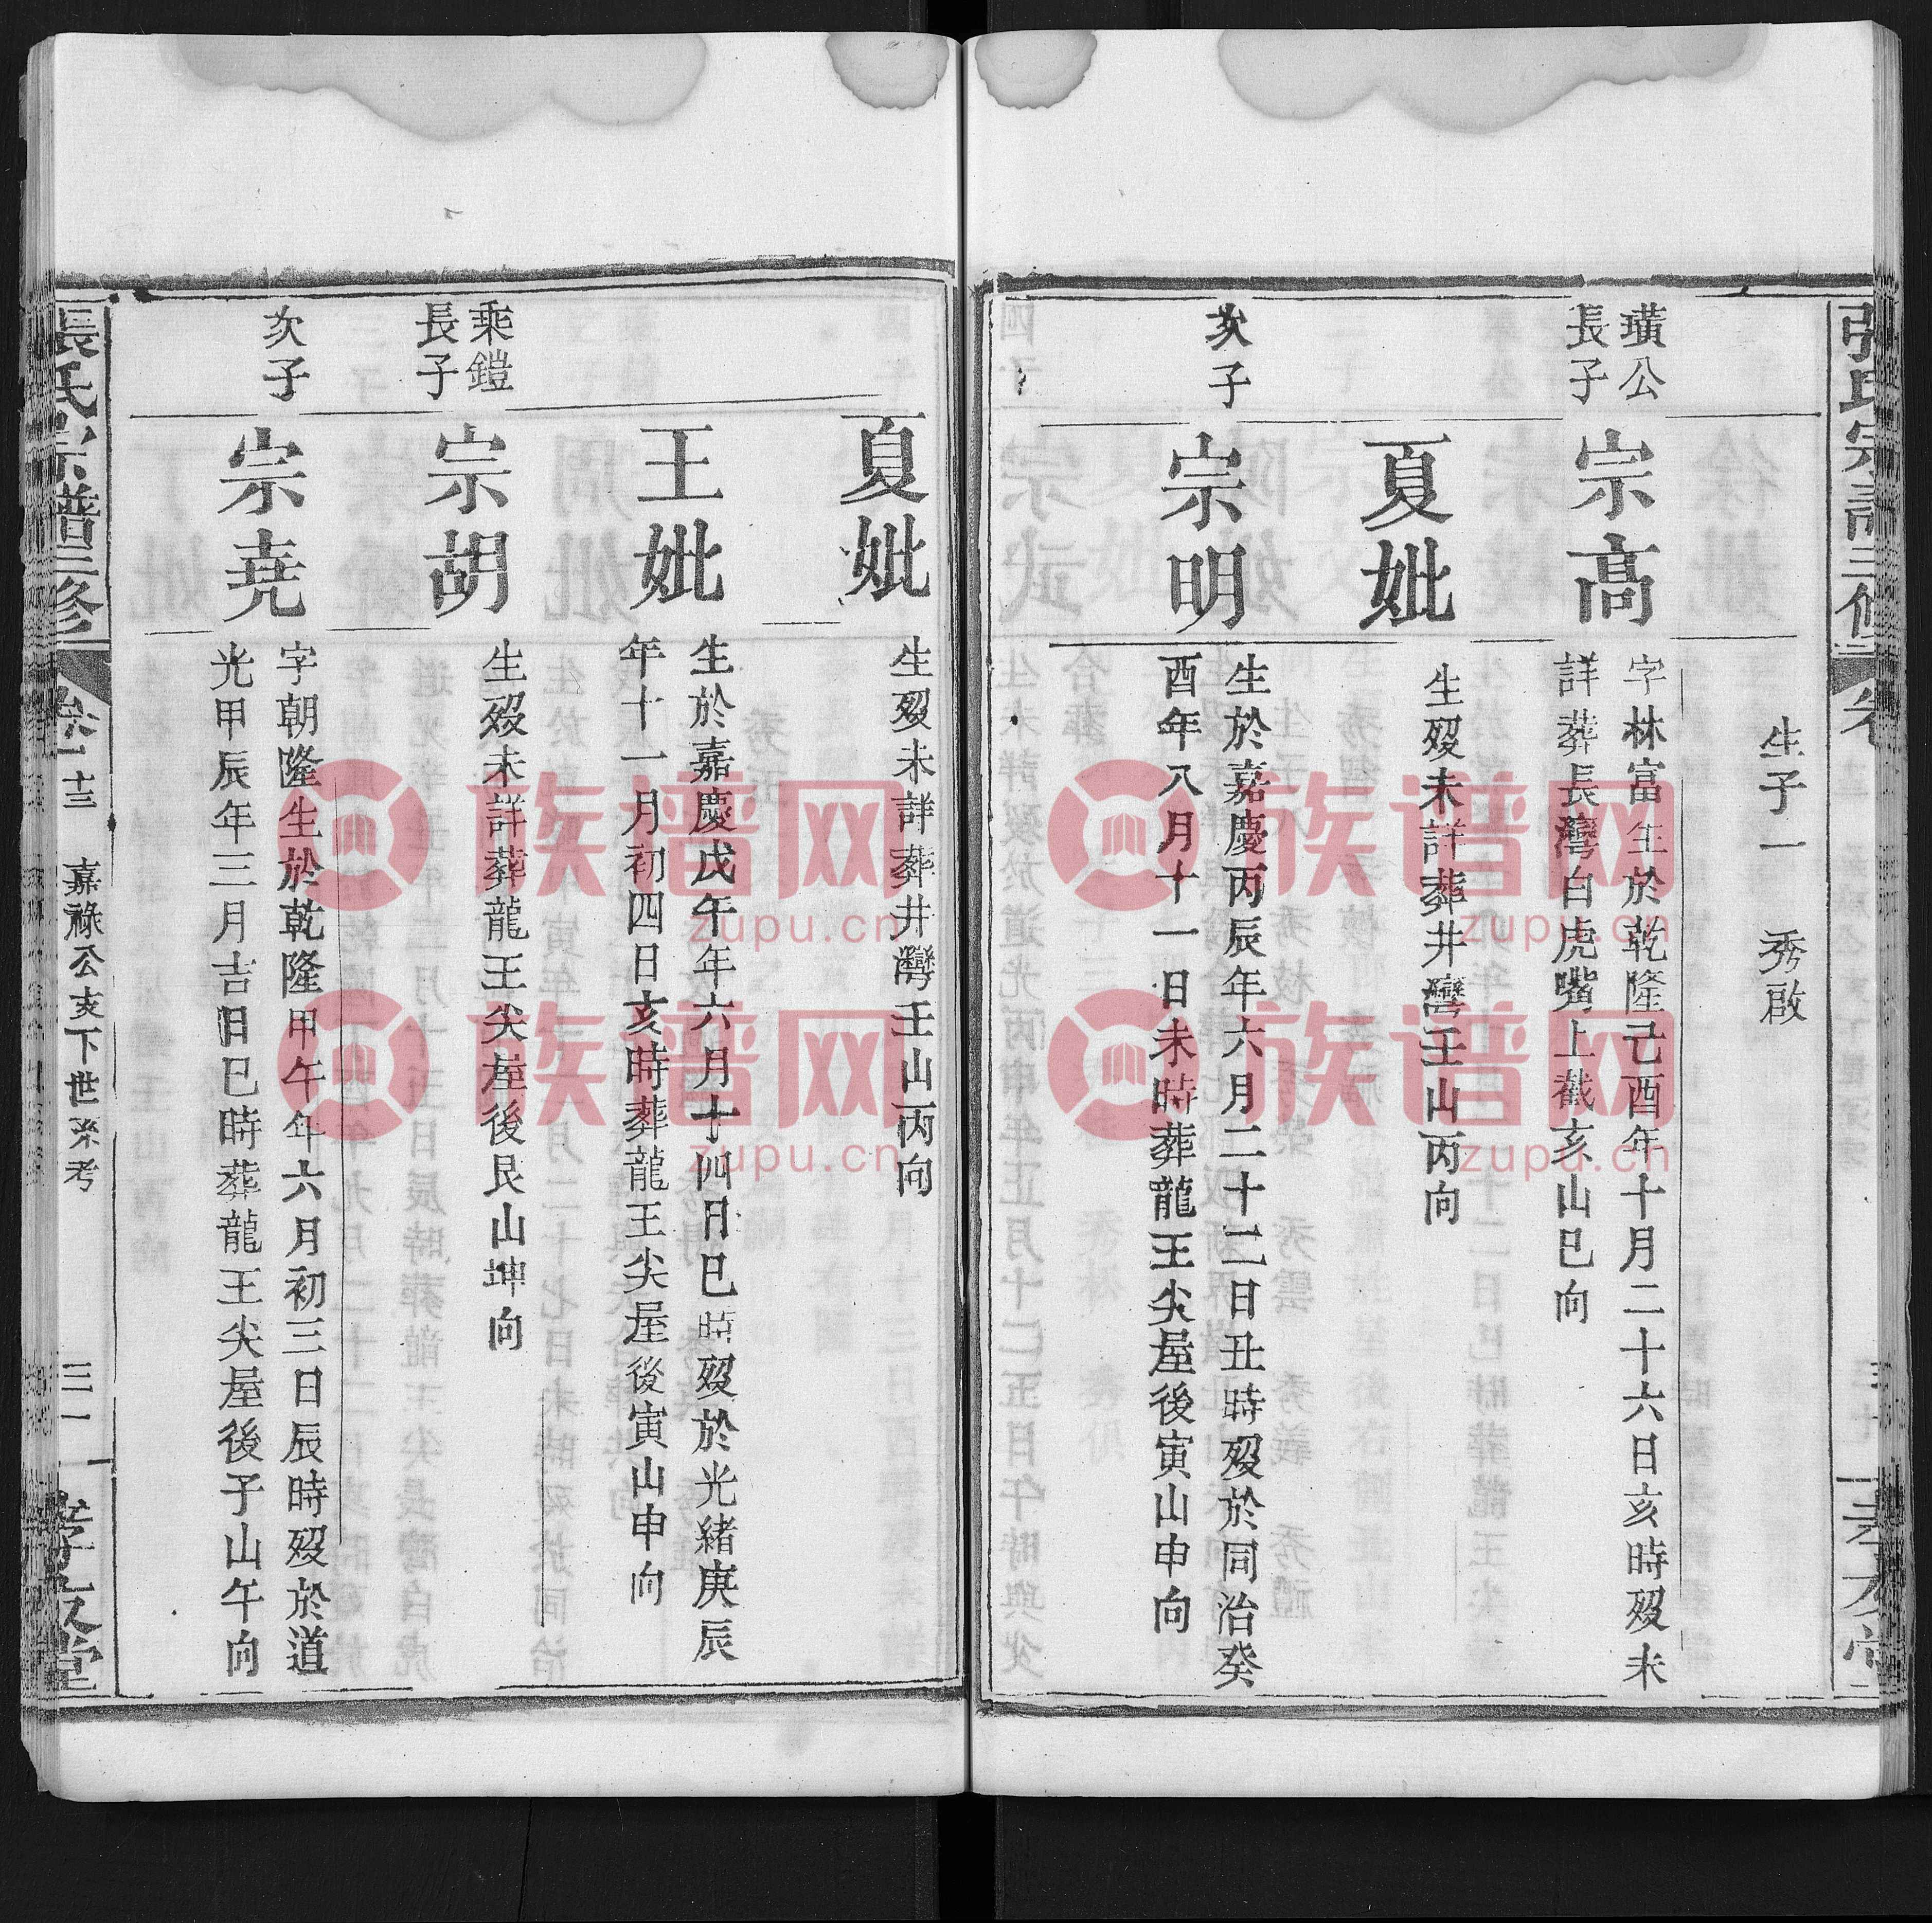 張氏宗譜三修
卷
生子一 秀啟
璜公
長子
宗高
字林富生於乾隆己酉年十月二十六日亥時歿未
詳葬長灣白虎嘴上截亥山巳向
夏妣
生歿未詳葬井灣壬山丙向
次子
宗明
生於嘉慶丙辰年六月二十二日丑時歿於同治癸
酉年八月十一日未時葬龍王尖屋後寅山申向
夏妣
生歿未詳葬井灣壬山丙向
王妣
生於嘉慶戊午年六月十四日巳時歿於光緒庚辰
年十一月初四日亥時葬龍王尖屋後寅山申向
乘鎧
長子
宗胡
生歿未詳葬龍王尖屋後艮山坤向
次子
宗堯
字朝隆生於乾隆甲午年六月初三日辰時歿於道
光甲辰年三月吉旦巳時葬龍王尖屋後子山午向
張氏宗譜三修
卷六
十三
嘉祿公亥下世系考
三一
孝友堂
族谱网
zupu.cn
族谱网
zupu.cn
族谱网
zupu.cn
族谱网
zupu.cn